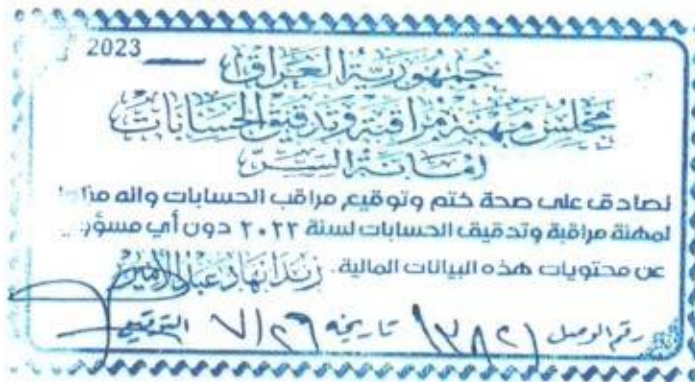 2023
جمهورية العراق
مجلس مهنة مراقبة وتدقيق الحسابات
امانة السر
نصادق على صحة ختم وتوقيع مراقب الحسابات وانه
لمهنة مراقبة وتدقيق الحسابات لسنة ٢٠٢٢ دون أي
عن محتويات هذه البيانات المالية.
رقم الوصل تاريخه ٧/٢٦ التوقيع